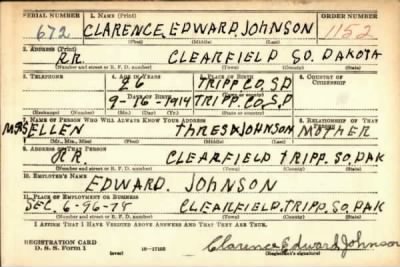 SERIAL NUMBER 1. NAME (Print) ORDER NUMBER
672 CLARENCE EDWARD JOHNSON 1152
(First) (Middle) (Last)
2. ADDRESS (Print)
R.R. CLEARFIELD SO. DAKOTA
(Number and street or R. F. D. number) (Town) (County) (State)
3. TELEPHONE 4. AGE IN YEARS 5. PLACE OF BIRTH 6. COUNTRY OF CITIZENSHIP
26 TRIPP CO, S.D
DATE OF BIRTH
9-16-1914 TRIPP CO, S.D
(Exchange) (Number) (Mo.) (Day) (Yr.) (State or country)
7. NAME OF PERSON WHO WILL ALWAYS KNOW YOUR ADDRESS 8. RELATIONSHIP OF THAT PERSON
MRS ELLEN JOHNSON MOTHER
(Mr., Mrs., Miss) (First) (Middle) (Last)
9. ADDRESS OF THAT PERSON
R.R. CLEARFIELD TRIPP. SO, DAK
(Number and street or R. F. D. number) (Town) (County) (State)
10. EMPLOYER'S NAME
EDWARD. JOHNSON
11. PLACE OF EMPLOYMENT OR BUSINESS
SEC. 6-96-78 CLEARFIELD, TRIPP. SO, DAK
(Number and street or R. F. D. number) (Town) (County) (State)
I AFFIRM THAT I HAVE VERIFIED ABOVE ANSWERS AND THAT THEY ARE TRUE.
REGISTRATION CARD
D. S. S. Form 1 (over) 16-17105 Clarence Edward Johnson
(Registrant's signature)